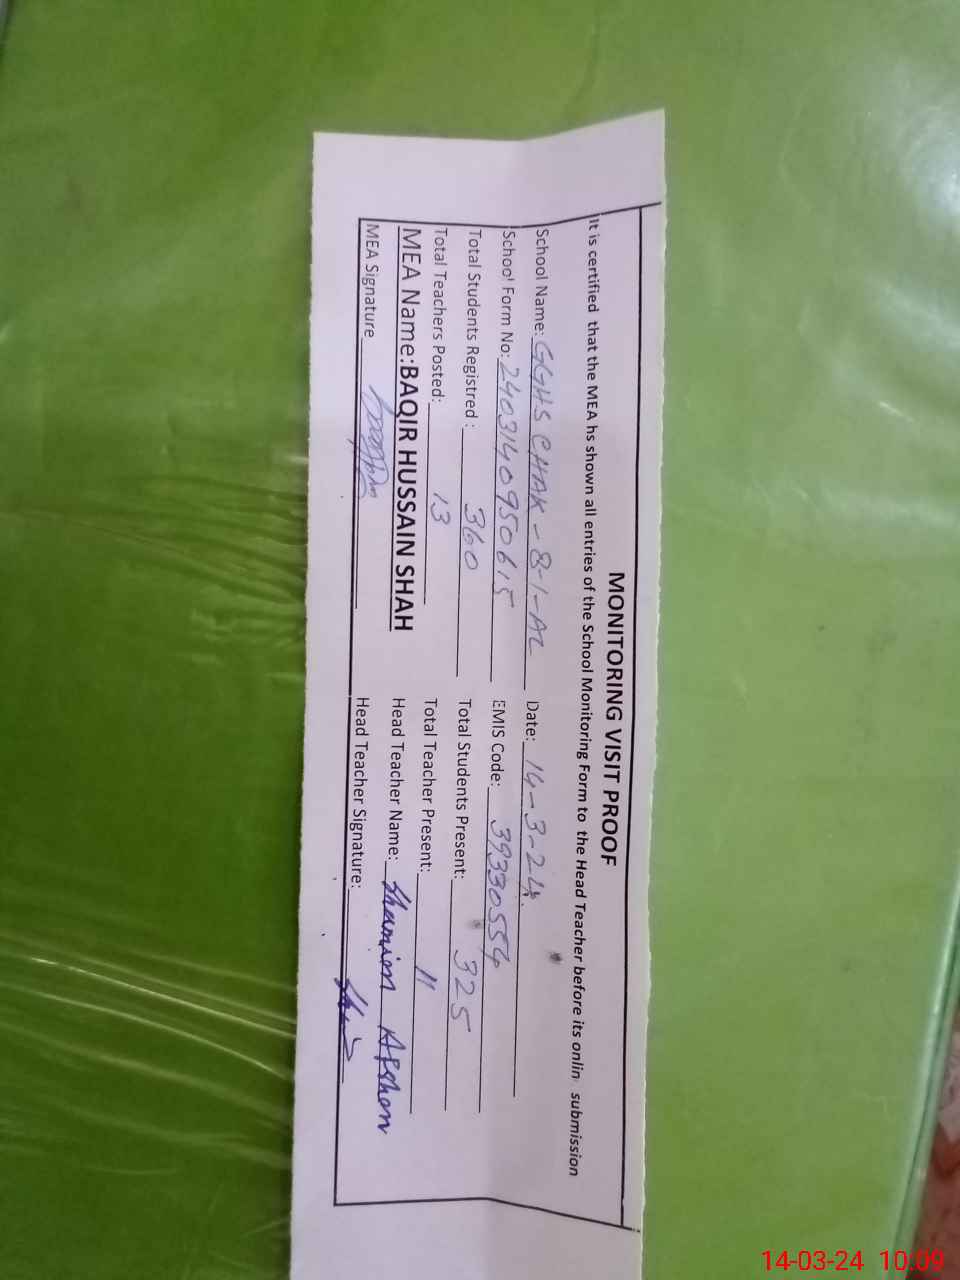 MONITORING VISIT PROOF
It is certified that the MEA hs shown all entries of the School Monitoring Form to the Head Teacher before its onlin submission
School Name: GGHS CHAK-8-1-AL Date: 14-3-24
School Form No: 2403140950615 EMIS Code: 39330554
Total Students Registred : 360 Total Students Present: 325
Total Teachers Posted: 13 Total Teacher Present: 11
MEA Name:BAQIR HUSSAIN SHAH Head Teacher Name: Afshan
MEA Signature Head Teacher Signature:
14-03-24 10:09